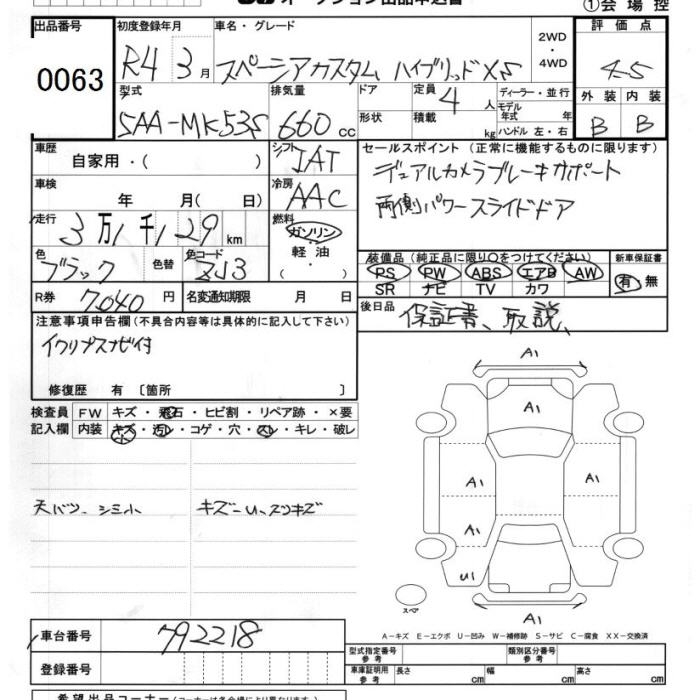 オークション出品申込書
①会場控
出品番号
0063
初度登録年月
R4 3月
車名・グレード
スペーシアカスタム ハイブリッドXS
2WD
・
4WD
評価点
4.5
外装 内装
B B
型式
5AA-MK53S
排気量
660 cc
ドア
形状
定員
4 人
積載
kg
ディーラー・並行
モデル年式 年
ハンドル 左・右
車歴
自家用・( )
シフト
IAT
車検
年 月( 日)
冷房
AAC
走行
3万1千129km
燃料
ガソリン
・
軽油
・
色
ブラック
色替
色コード
ZJ3
R券 7040 円
名変通知期限 月 日
セールスポイント(正常に機能するものに限ります)
デュアルカメラブレーキサポート
両側パワースライドドア
装備品(純正品に限り○をつけてください)
PS PW ABS エアB AW
SR ナビ TV カワ
新車保証書
有 無
後日品
保証書、取説、
注意事項申告欄(不具合内容等は具体的に記入して下さい)
イクリプスナビ付
修復歴 有〔箇所 〕
検査員
記入欄
FW キズ・飛石・ヒビ割・リペア跡・×要
内装 キズ・汚レ・コゲ・穴・スレ・キレ・破レ
小
天バリ シミ小
キズ-U、スリキズ
A1
A1
A1
A1
A1
U1
A1
スペア
A-キズ E-エクボ U-凹み W-補修跡 S-サビ C-腐食 XX-交換済
車台番号 792218
登録番号
型式指定番号
参考
類別区分番号
参考
車庫証明用
参考
長さ cm
幅 cm
高さ cm
希望出品コーナー